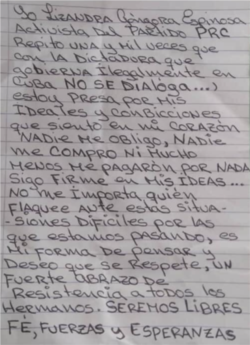 Yo Lizandra Góngora Espinosa
Activista Del Partido PRC
Repito UNA y Mil veces que
con la Dictadura que
gobierna ilegalmente en
Cuba NO SE DiAloga...)
estoy PRESA por Mis
IDeales y conbicciones
que siento en mi corazón
NADie Me Obligo, NADie
me COMPRO Ni Mucho
Menos Me PAGARON POR NADA
Sigo Firme en Mis IDEAS...
No me Importa quién
FlAquee Ante estas situa-
-siones DiFiciles por las
que estamos pasando, es
Mi forma de Pensar y
Deseo que se Respete, UN
Fuerte AbRAZO de
Resistencia a todos los
Hermanos. SEREMOS LIBRES
FÉ, FUERZAS y ESPERANZAS